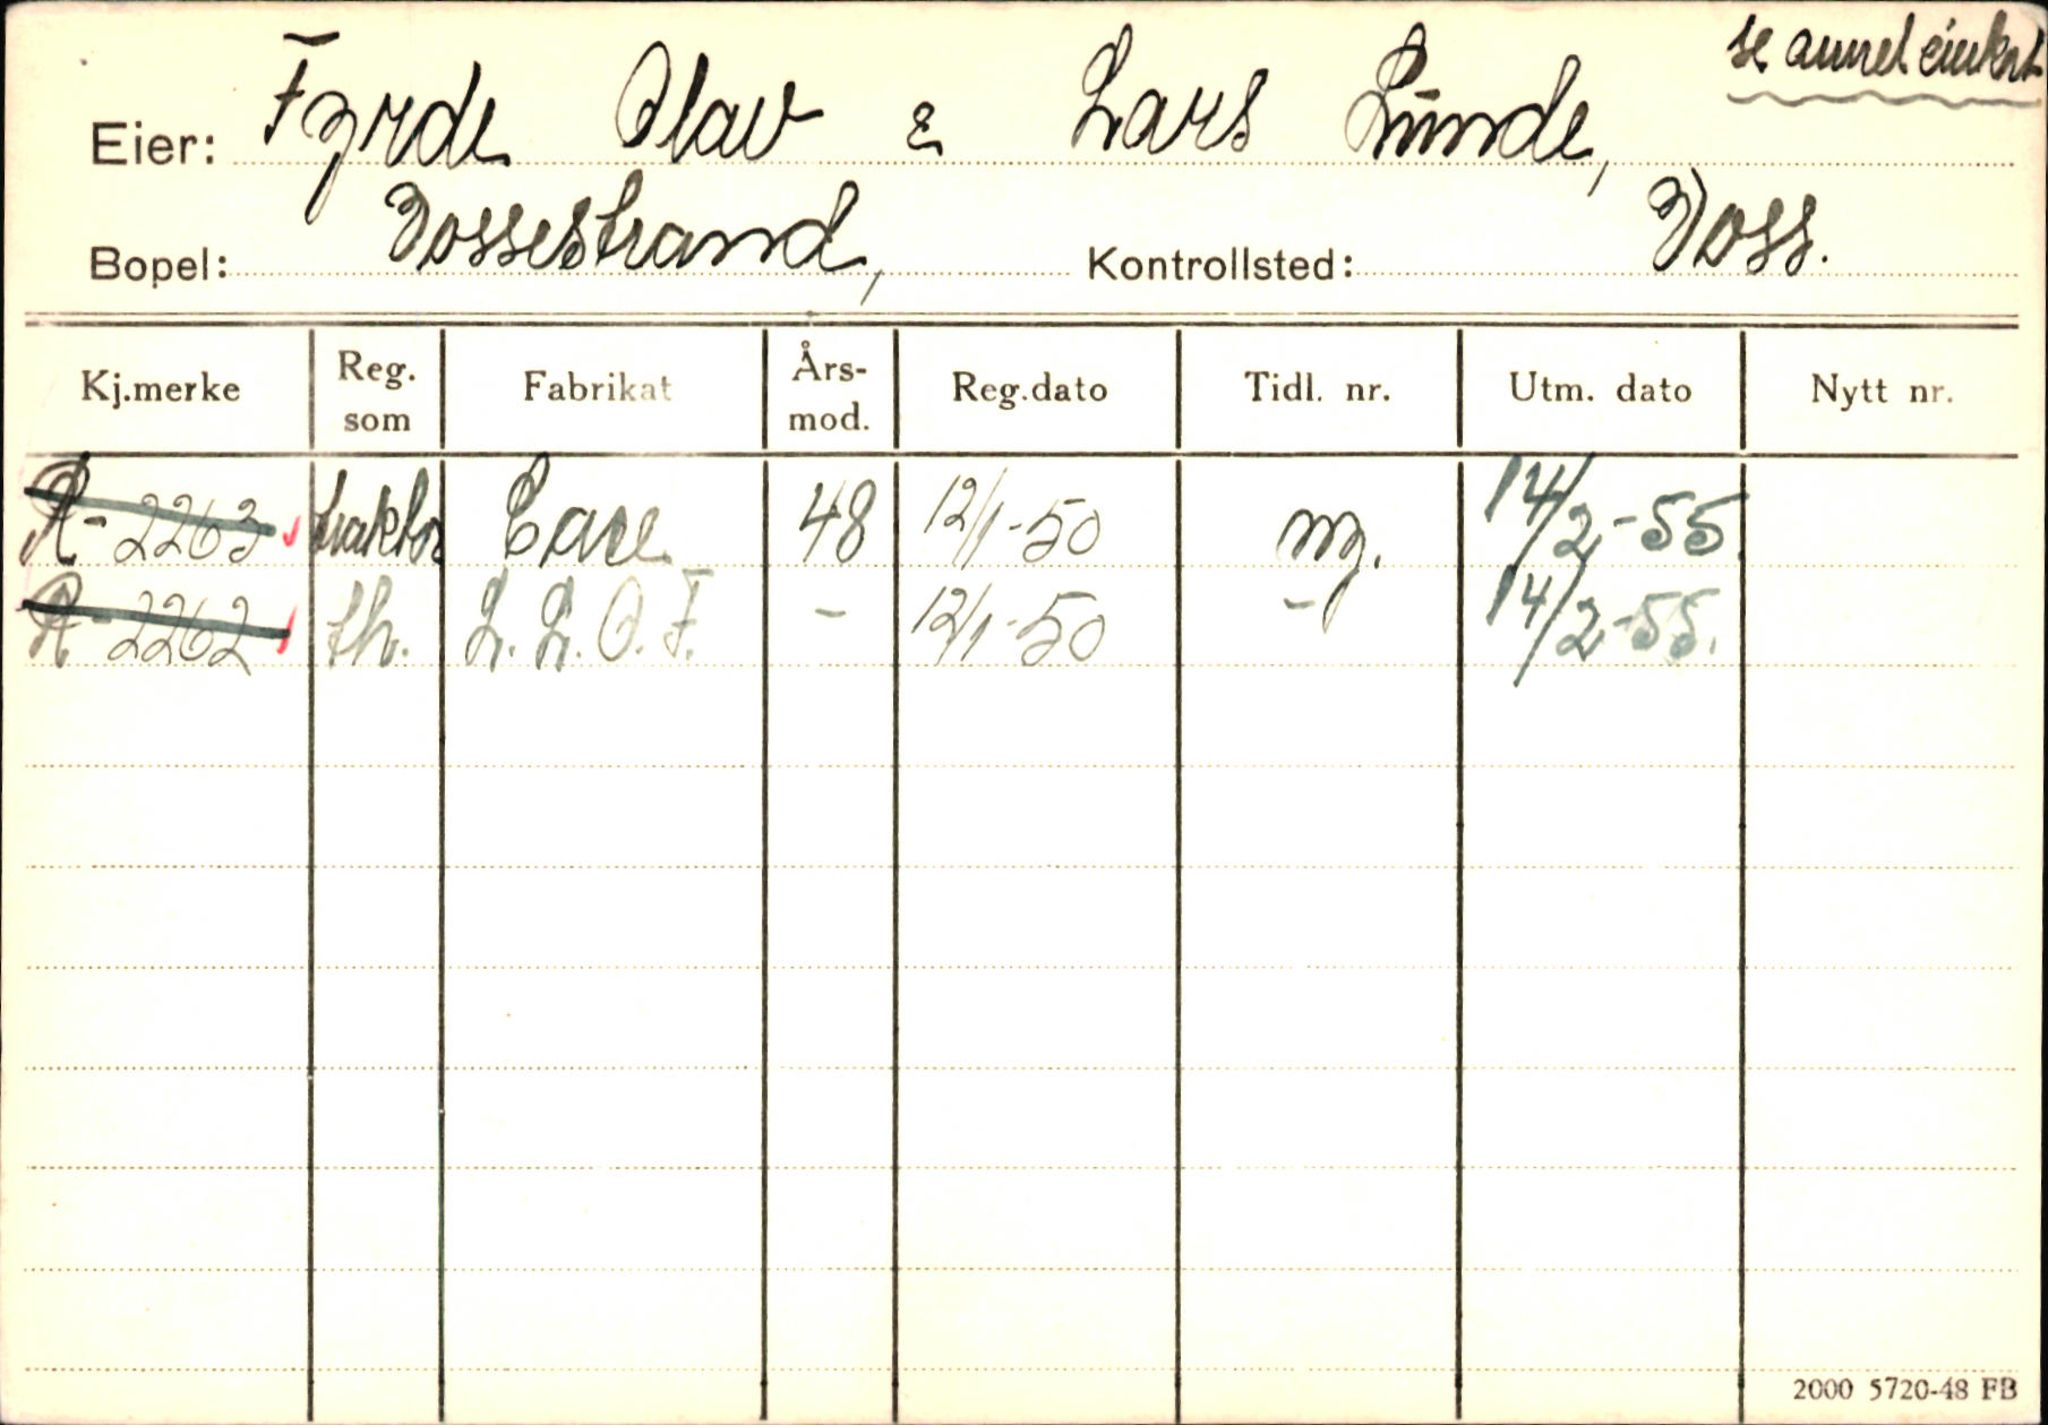 se annet eierkort
Eier: Fyrde Olav & Lars Lunde,
Bopel: Vossestrand, Kontrollsted: Voss.
Kj.merke Reg. som Fabrikat Års-mod. Reg.dato Tidl. nr. Utm. dato Nytt nr.
R-2263 traktor Case 48 12/1-50 ny. 14/2-55.
R-2262 th. L.L.O.F. - 12/1-50 - 14/2-55.
2000 5720-48 FB